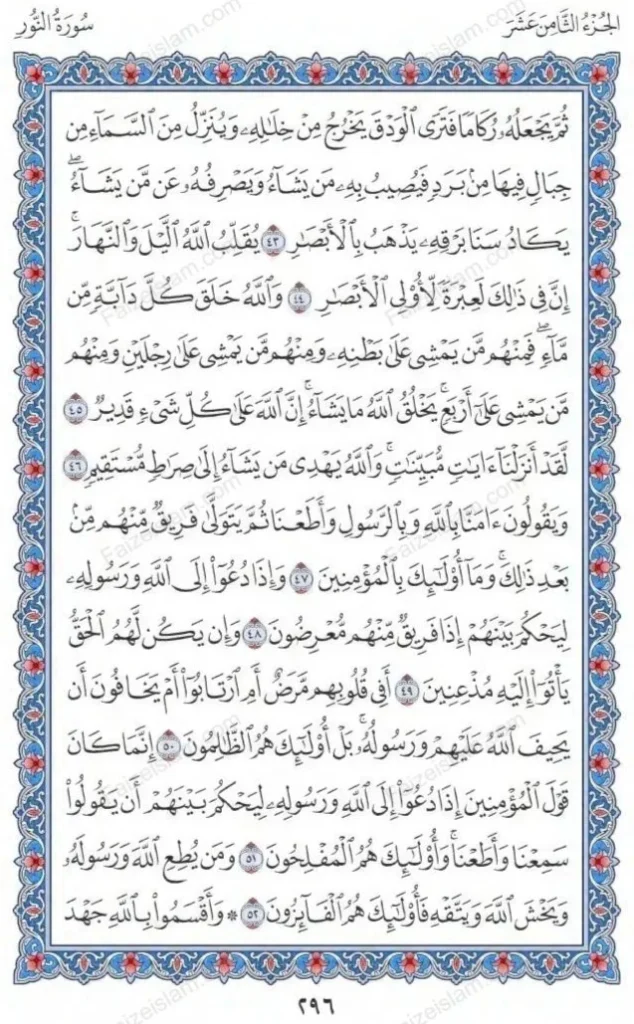 الجُزْءُ الثَّامِنَ عَشَرَ
سُورَةُ النُّورِ
ثُمَّ يَجْعَلُهُۥ رُكَامًا فَتَرَى ٱلْوَدْقَ يَخْرُجُ مِنْ خِلَـٰلِهِۦ وَيُنَزِّلُ مِنَ ٱلسَّمَآءِ مِن
جِبَالٍ فِيهَا مِنۢ بَرَدٍ فَيُصِيبُ بِهِۦ مَن يَشَآءُ وَيَصْرِفُهُۥ عَن مَّن يَشَآءُ ۖ
يَكَادُ سَنَا بَرْقِهِۦ يَذْهَبُ بِٱلْأَبْصَـٰرِ ٤٣ يُقَلِّبُ ٱللَّهُ ٱلَّيْلَ وَٱلنَّهَارَ ۚ
إِنَّ فِى ذَٰلِكَ لَعِبْرَةً لِّأُو۟لِى ٱلْأَبْصَـٰرِ ٤٤ وَٱللَّهُ خَلَقَ كُلَّ دَآبَّةٍ مِّن
مَّآءٍ ۖ فَمِنْهُم مَّن يَمْشِى عَلَىٰ بَطْنِهِۦ وَمِنْهُم مَّن يَمْشِى عَلَىٰ رِجْلَيْنِ وَمِنْهُم
مَّن يَمْشِى عَلَىٰٓ أَرْبَعٍ ۚ يَخْلُقُ ٱللَّهُ مَا يَشَآءُ ۚ إِنَّ ٱللَّهَ عَلَىٰ كُلِّ شَىْءٍ قَدِيرٌ ٤٥
لَّقَدْ أَنزَلْنَآ ءَايَـٰتٍ مُّبَيِّنَـٰتٍ ۚ وَٱللَّهُ يَهْدِى مَن يَشَآءُ إِلَىٰ صِرَٰطٍ مُّسْتَقِيمٍ ٤٦
وَيَقُولُونَ ءَامَنَّا بِٱللَّهِ وَبِٱلرَّسُولِ وَأَطَعْنَا ثُمَّ يَتَوَلَّىٰ فَرِيقٌ مِّنْهُم مِّنۢ
بَعْدِ ذَٰلِكَ ۚ وَمَآ أُو۟لَـٰٓئِكَ بِٱلْمُؤْمِنِينَ ٤٧ وَإِذَا دُعُوٓا۟ إِلَى ٱللَّهِ وَرَسُولِهِۦ
لِيَحْكُمَ بَيْنَهُمْ إِذَا فَرِيقٌ مِّنْهُم مُّعْرِضُونَ ٤٨ وَإِن يَكُن لَّهُمُ ٱلْحَقُّ
يَأْتُوٓا۟ إِلَيْهِ مُذْعِنِينَ ٤٩ أَفِى قُلُوبِهِم مَّرَضٌ أَمِ ٱرْتَابُوٓا۟ أَمْ يَخَافُونَ أَن
يَحِيفَ ٱللَّهُ عَلَيْهِمْ وَرَسُولُهُۥ ۚ بَلْ أُو۟لَـٰٓئِكَ هُمُ ٱلظَّـٰلِمُونَ ٥٠ إِنَّمَا كَانَ
قَوْلَ ٱلْمُؤْمِنِينَ إِذَا دُعُوٓا۟ إِلَى ٱللَّهِ وَرَسُولِهِۦ لِيَحْكُمَ بَيْنَهُمْ أَن يَقُولُوا۟
سَمِعْنَا وَأَطَعْنَا ۚ وَأُو۟لَـٰٓئِكَ هُمُ ٱلْمُفْلِحُونَ ٥١ وَمَن يُطِعِ ٱللَّهَ وَرَسُولَهُۥ
وَيَخْشَ ٱللَّهَ وَيَتَّقْهِ فَأُو۟لَـٰٓئِكَ هُمُ ٱلْفَآئِزُونَ ٥٢ ۞ وَأَقْسَمُوا۟ بِٱللَّهِ جَهْدَ
٢٩٦
Faizeislam.com